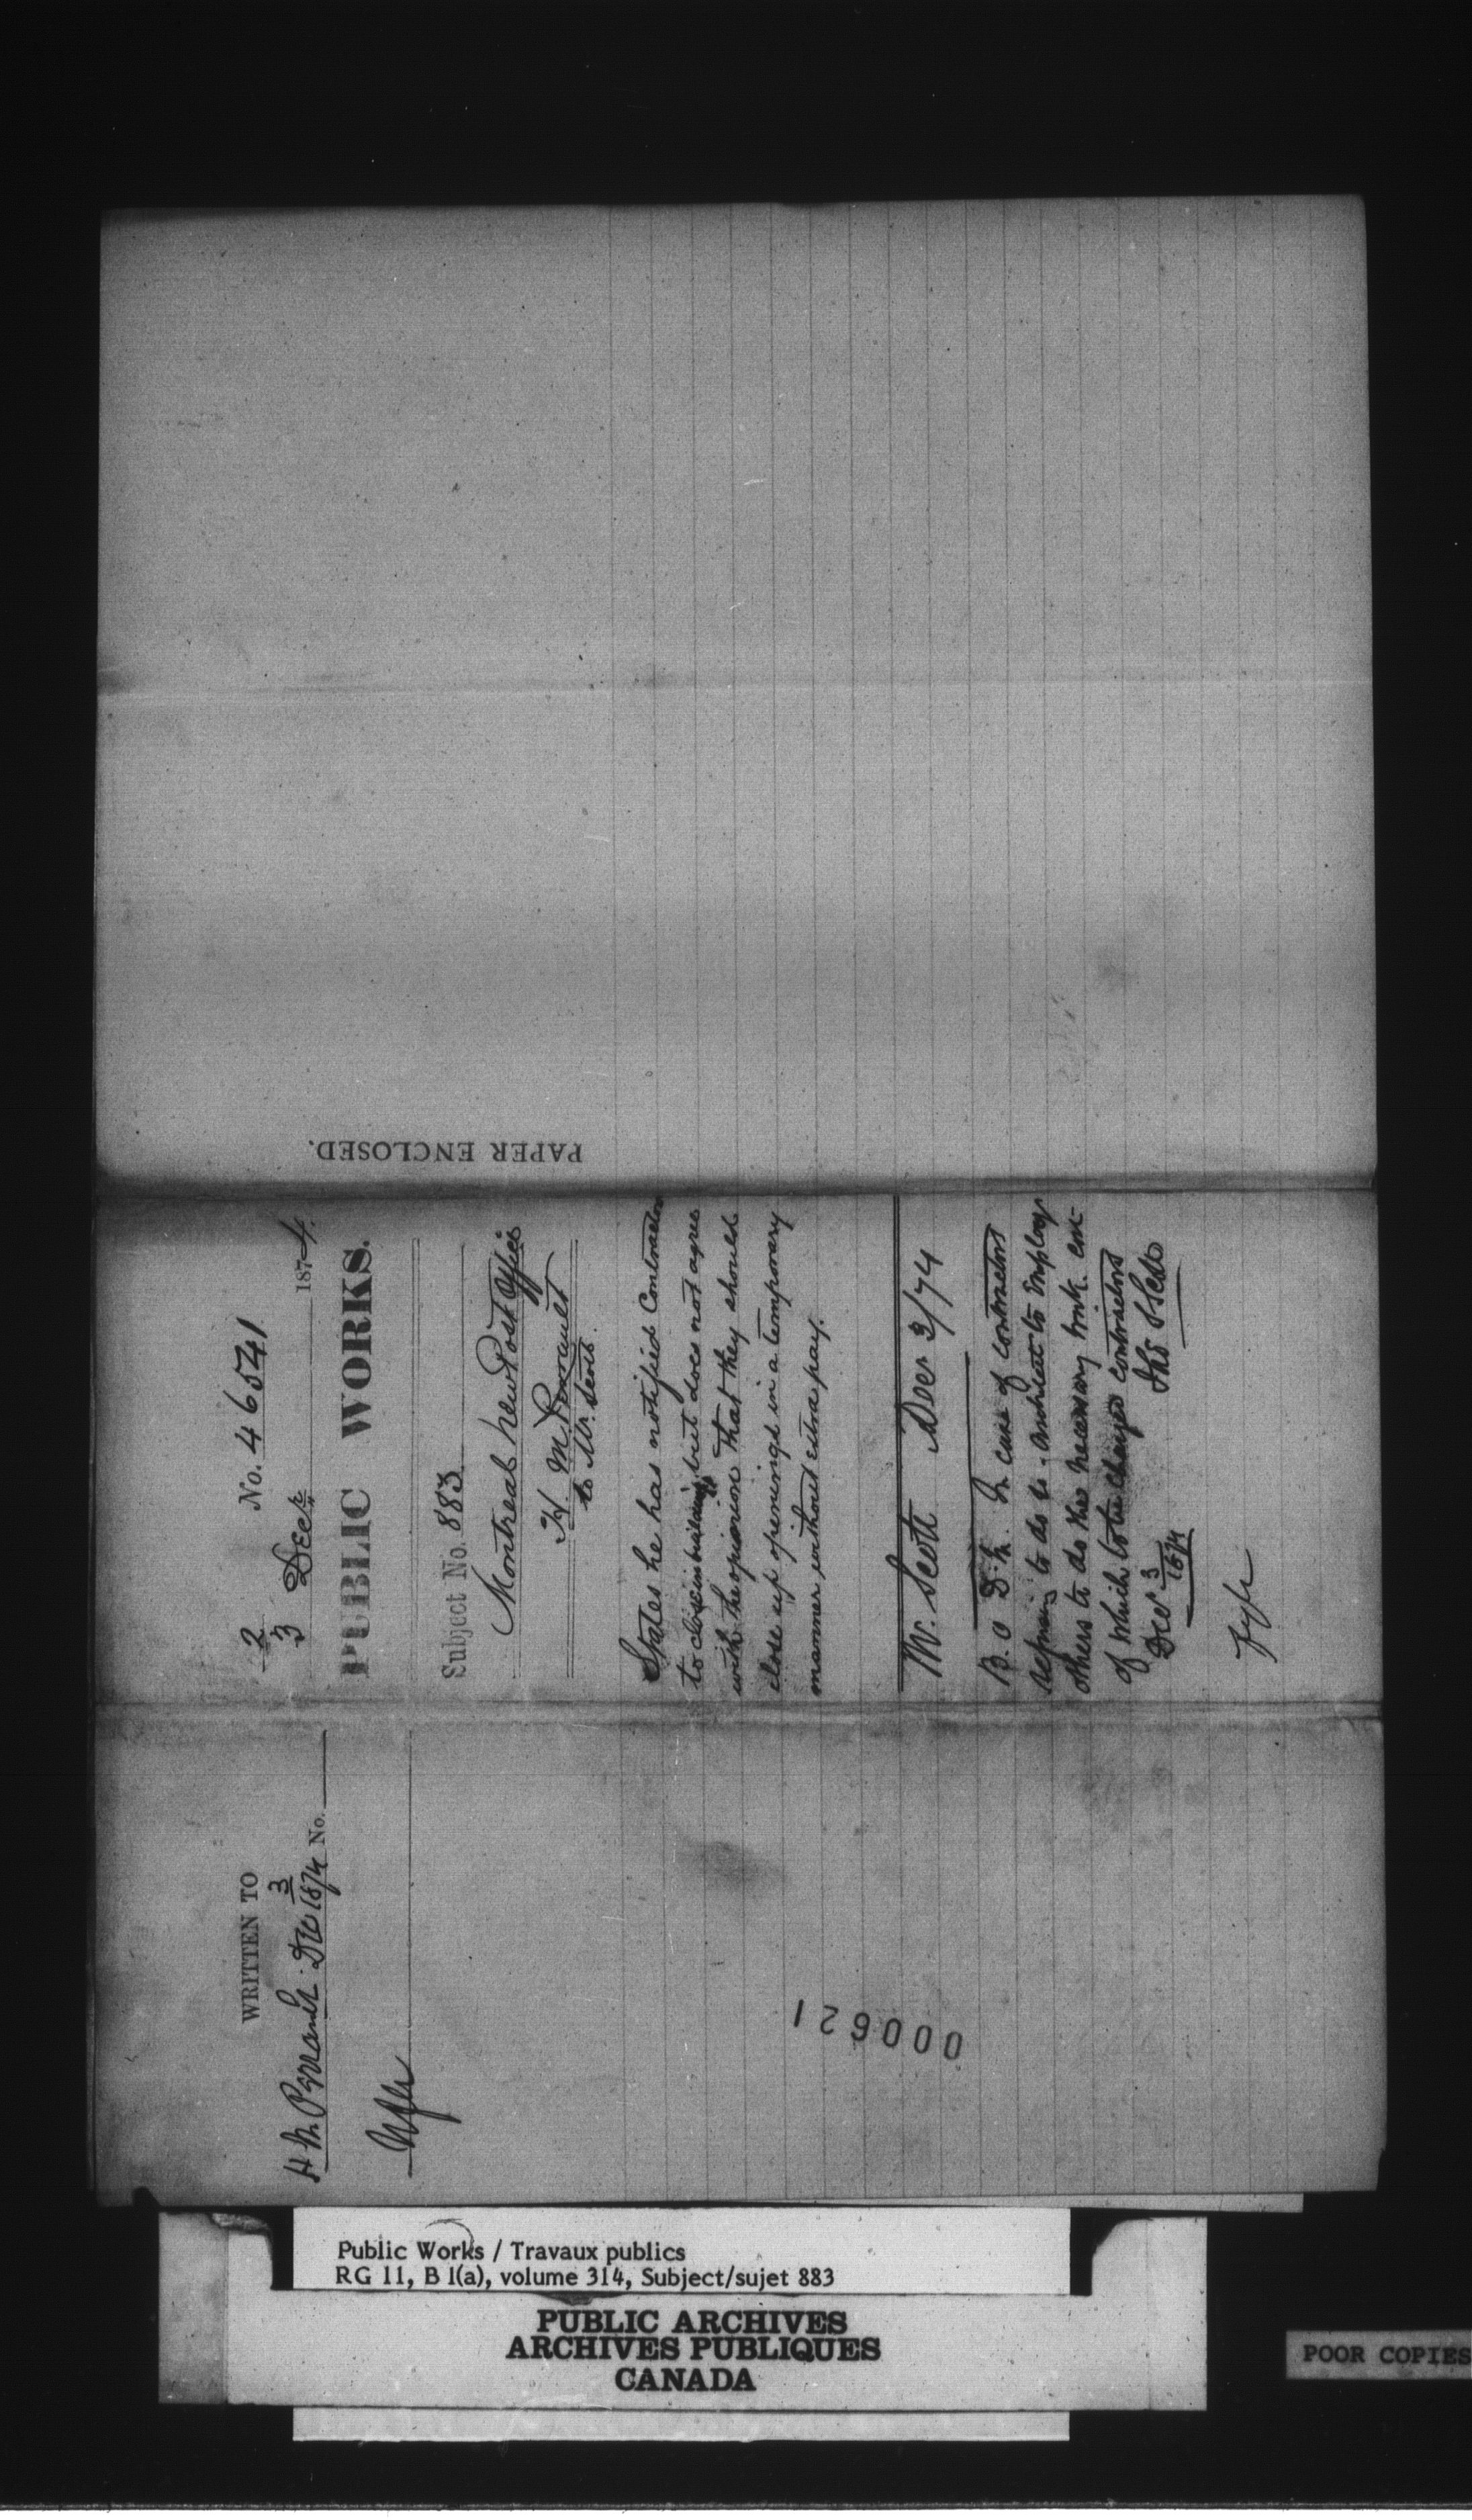 WRITTEN TO
H M Perrault Dec 3 1874 No.
No. 46541
2
3 Decr. 1874.
PUBLIC WORKS.
Subject No. 883
Montreal New Post Office
H. M. Perrault
to Mr. Scott.
States he has notified Contractor
to close in building, but does not agree
with the opinion that they should
close up openings in a temporary
manner without extra pay.
Mr. Scott Decr 3/74
In case of contractors
refusing to do so. Architect to employ
others to do the necessary work. cost
of which to be charged contractors
Ths S Scott
Decr 3
1874
PAPER ENCLOSED.
000621
Public Works / Travaux publics
RG 11, B 1(a), volume 314, Subject/sujet 883
PUBLIC ARCHIVES
ARCHIVES PUBLIQUES
CANADA
POOR COPIES